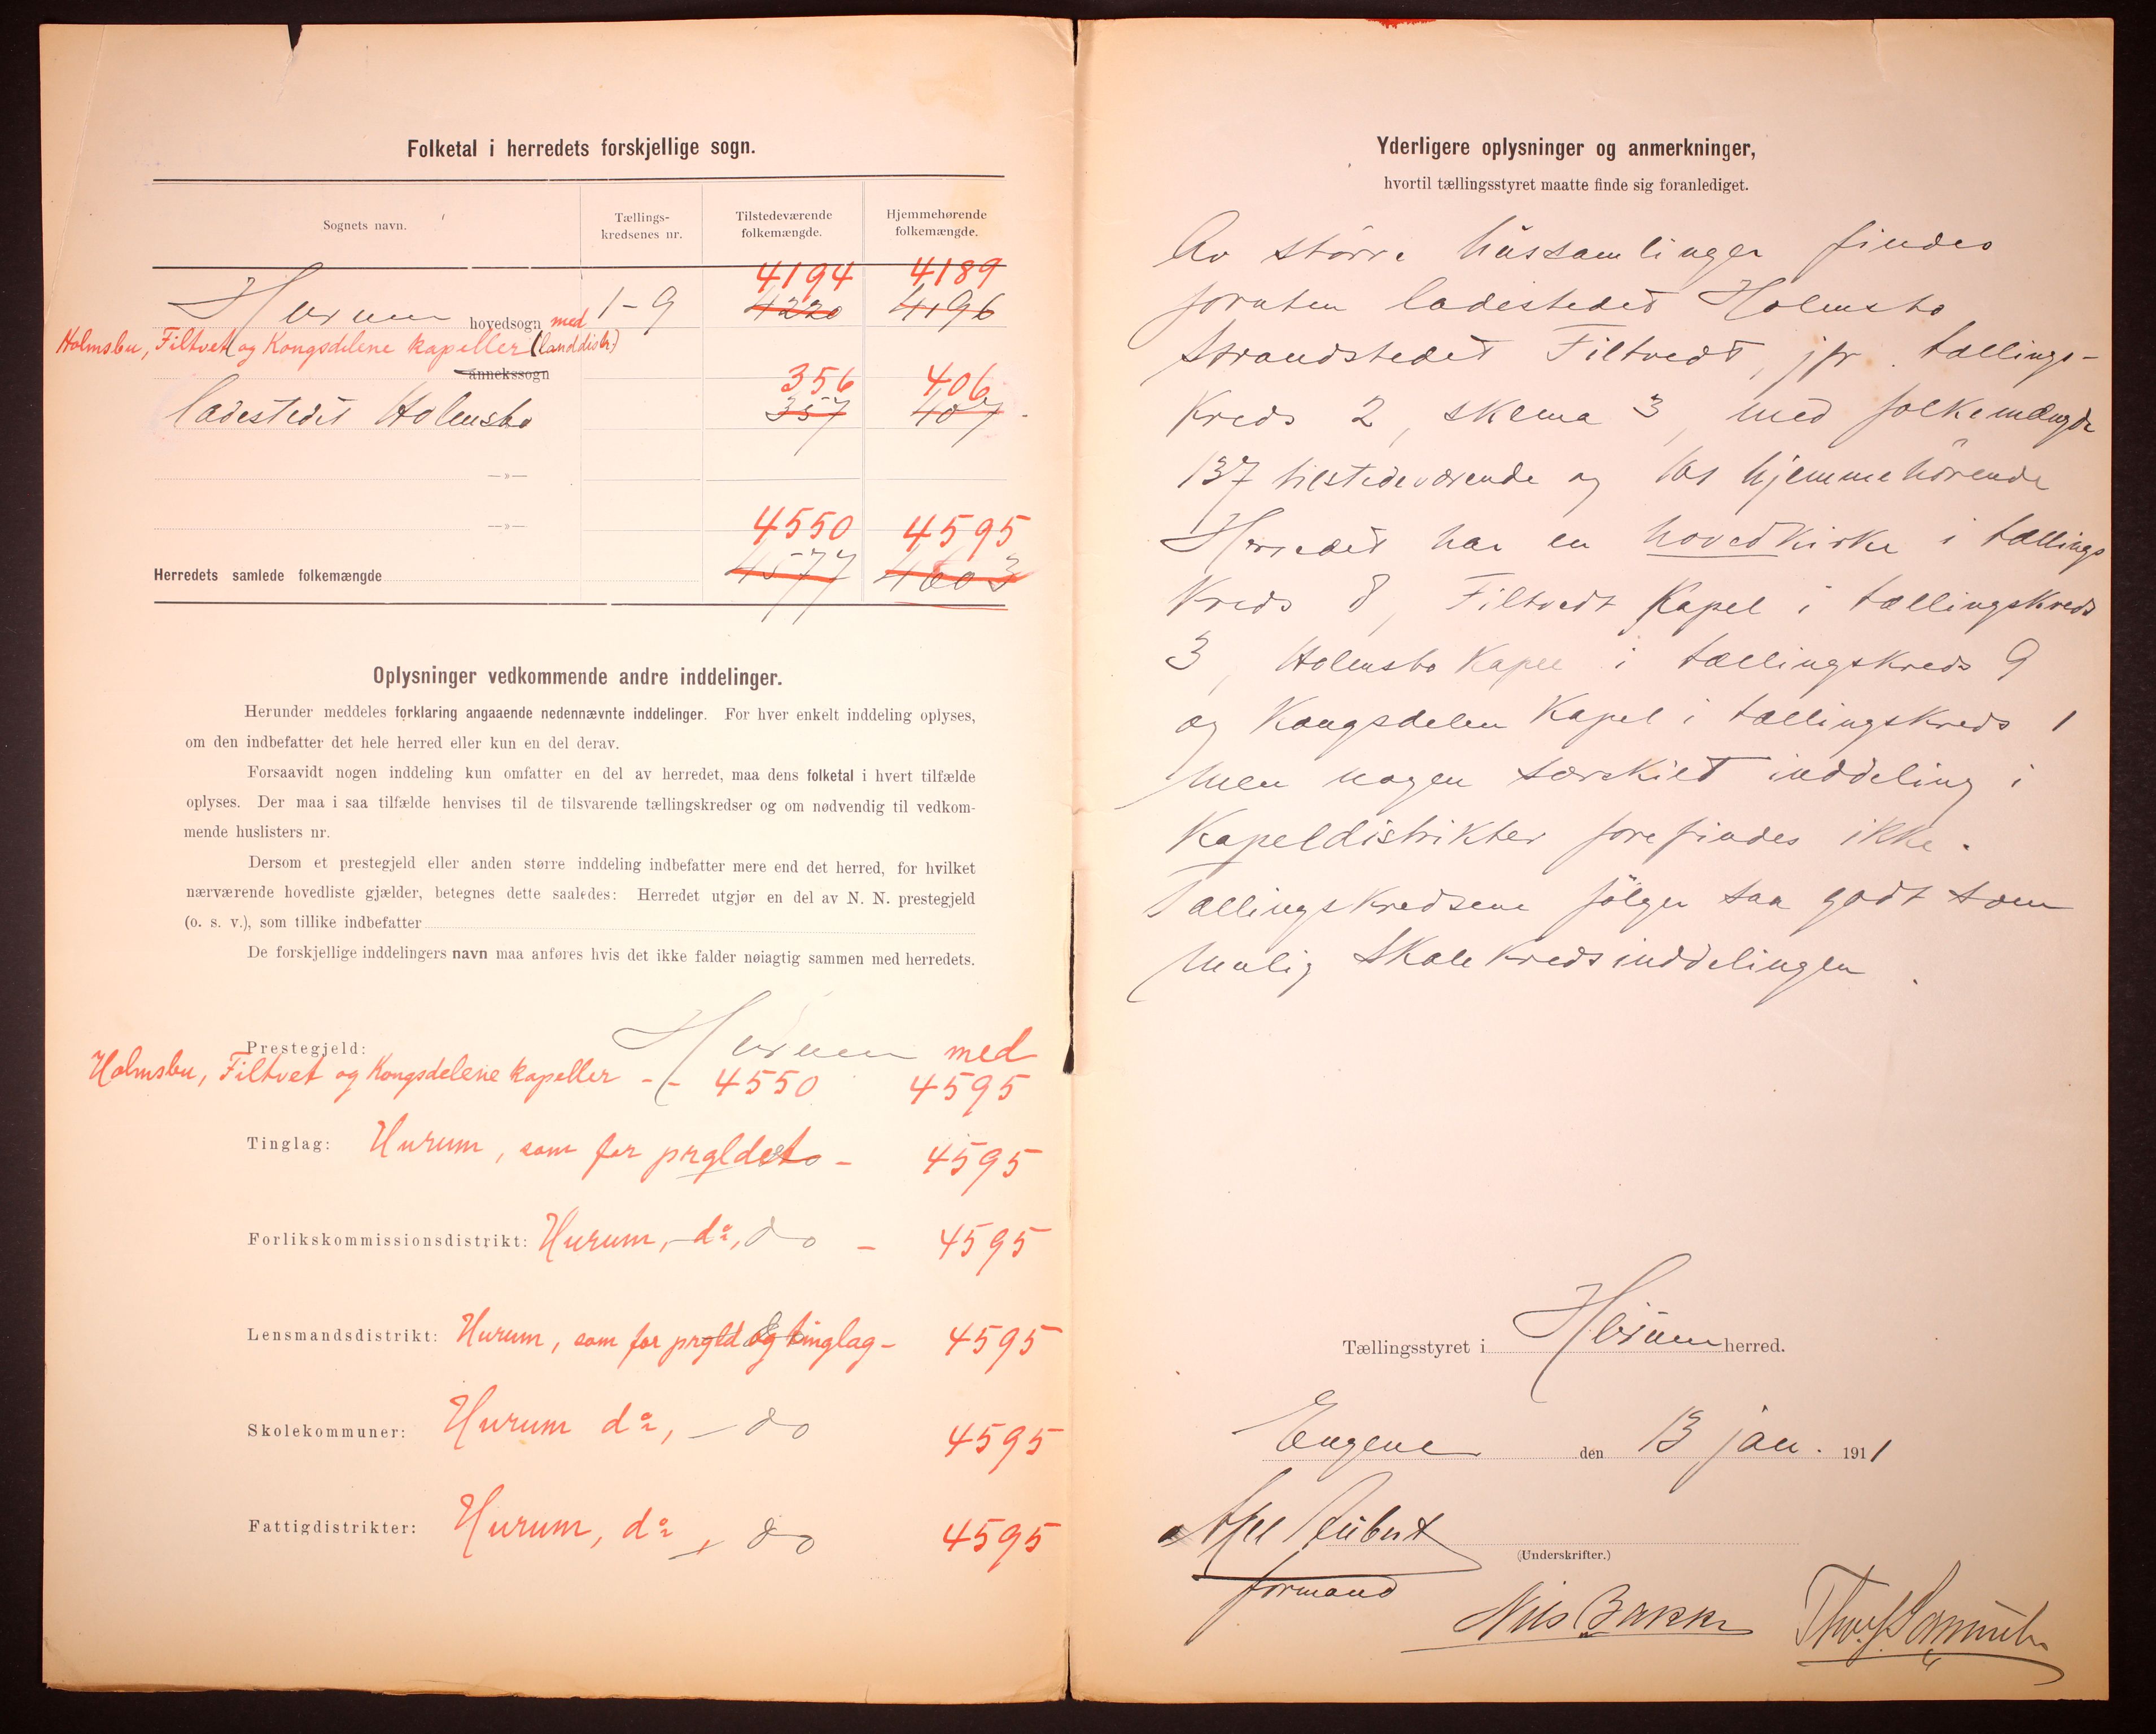 Folketal i herredets forskjellige sogn.
Sognets navn.
Tællings-
kredsenes nr.
Tilstedeværende
folkemængde.
Hjemmehørende
folkemængde.
4194 4189
Hurum hovedsogn med 1-9 4220 4196
Holmsbu, Filtvet og Kongsdelene kapeller (landdistr.)
annekssogn
356 406
Ladestedet Holmsbo 357 407
—»—
—»—
4550 4595
Herredets samlede folkemængde 4577 4603
Oplysninger vedkommende andre inddelinger.
Herunder meddeles forklaring angaaende nedennævnte inddelinger. For hver enkelt inddeling oplyses,
om den indbefatter det hele herred eller kun en del derav.
Forsaavidt nogen inddeling kun omfatter en del av herredet, maa dens folketal i hvert tilfælde
oplyses. Der maa i saa tilfælde henvises til de tilsvarende tællingskredser og om nødvendig til vedkom-
mende huslisters nr.
Dersom et prestegjeld eller anden større inddeling indbefatter mere end det herred, for hvilket
nærværende hovedliste gjælder, betegnes dette saaledes: Herredet utgjør en del av N. N. prestegjeld
(o. s. v.), som tillike indbefatter
De forskjellige inddelingers navn maa anføres hvis det ikke falder nøiagtig sammen med herredets.
Prestegjeld: Hurum med
Holmsbu, Filtvet og Kongsdelene kapeller - - 4550 4595
Tinglag: Hurum, som for prgldet - 4595
Forlikskommissionsdistrikt: Hurum, do, do - 4595
Lensmandsdistrikt: Hurum, som for prgld og tinglag - 4595
Skolekommuner: Hurum do, - do 4595
Fattigdistrikter: Hurum, do, do 4595
Yderligere oplysninger og anmerkninger,
hvortil tællingsstyret maatte finde sig foranlediget.
Av større hussamlinger findes
foruten ladestedet Holmsbo
Strandstedet Filtvedt, jfr. tællings-
kreds 2, skema 3, med folkemængde
137 tilstedeværende og hjemmehørende
Herredet har en hovedkirke i tællings
kreds 8, Filtvedt Kapel i tællingskreds
3, Holmsbo Kapel i tællingskreds 9
og Kongsdelen Kapel i tællingskreds 1
men nogen særskilt inddeling i
Kapeldistrikter forefindes ikke.
Tællingskredsene følger saa godt som
mulig Skolekredsinddelingen.
Tællingsstyret i Hurum herred.
Engene den 13 jan. 1911
Axel
(Underskrifter.)
formand
Nils Bakke